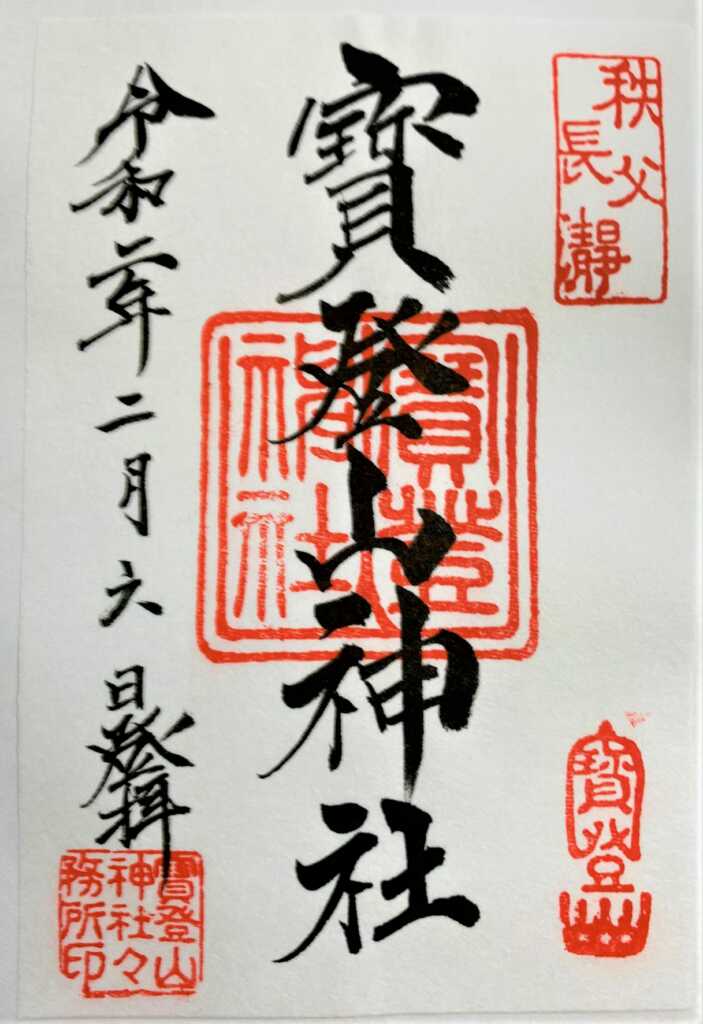 秩父
長瀞
寳登山神社
寳登
神社
寳登山
令和二年二月六日登拝
寳登山
神社々
務所印